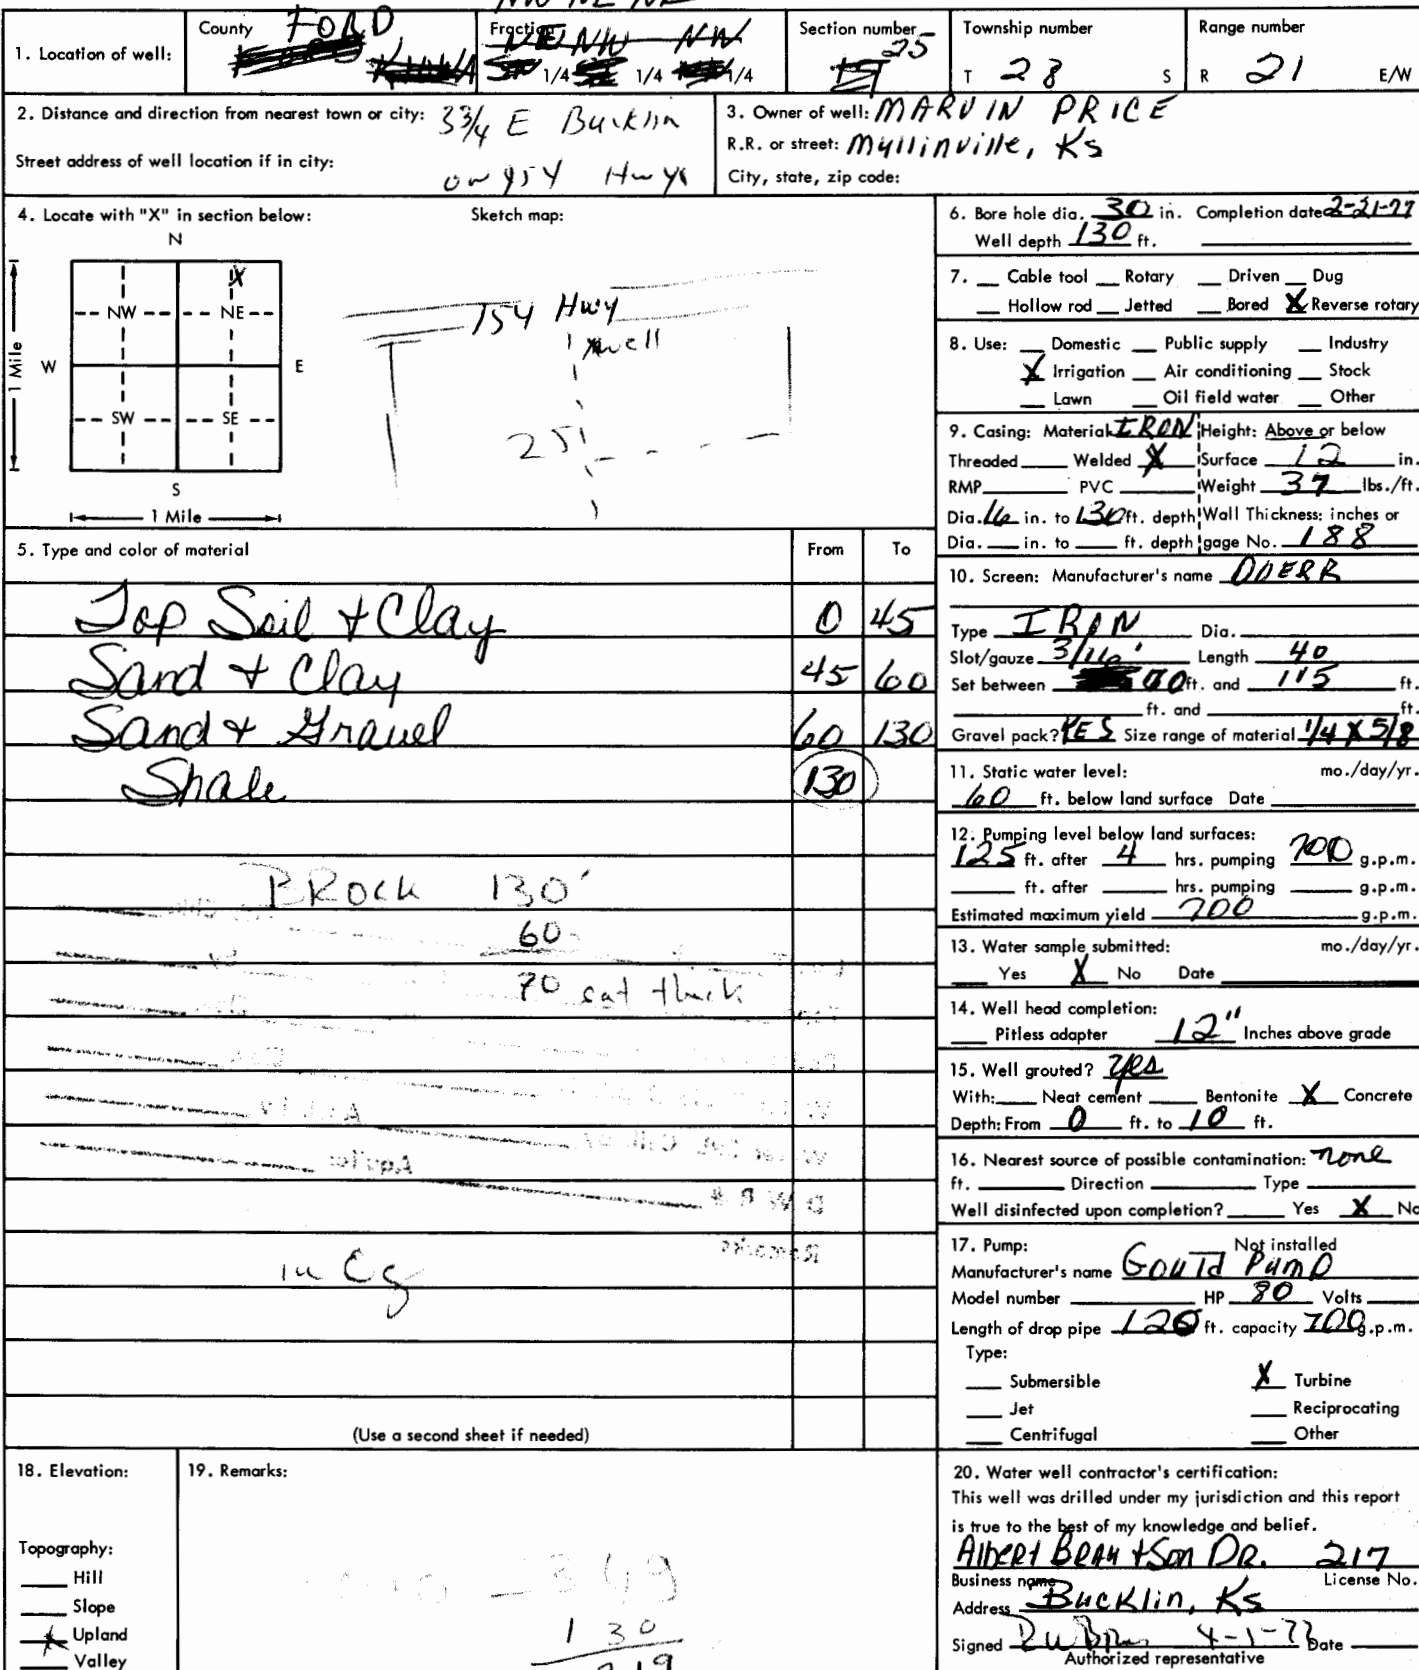 NW NE NE
1. Location of well:
County FORD
Fraction NE NW NW
1/4 1/4 1/4
Section number 25
Township number
T 28 S
Range number
R 21 E/W
2. Distance and direction from nearest town or city: 3 3/4 E Bucklin
Street address of well location if in city: Hwy
3. Owner of well: MARVIN PRICE
R.R. or street: Mullinville, Ks
City, state, zip code:
4. Locate with "X" in section below: Sketch map:
N
NW NE
W E
SW SE
S
1 Mile
1 Mile
X
154 Hwy
x well
25
5. Type and color of material From To
Top Soil + Clay 0 45
Sand + Clay 45 60
Sand + Gravel 60 130
Shale 130
BRock 130'
60
70 sat thick
Aquifer
Remarks
in Cg
(Use a second sheet if needed)
6. Bore hole dia. 30 in. Completion date 2-21-77
Well depth 130 ft.
7. Cable tool Rotary Driven Dug
Hollow rod Jetted Bored X Reverse rotary
8. Use: Domestic Public supply Industry
X Irrigation Air conditioning Stock
Lawn Oil field water Other
9. Casing: Material IRON Height: Above or below
Threaded Welded X Surface 12 in.
RMP PVC Weight 37 lbs./ft.
Dia. 16 in. to 130 ft. depth Wall Thickness: inches or
Dia. in. to ft. depth gage No. 188
10. Screen: Manufacturer's name DOERR
Type IRON Dia.
Slot/gauze 3/16' Length 40
Set between 70 ft. and 115 ft.
ft. and ft.
Gravel pack? YES Size range of material 1/4 X 5/8
11. Static water level: mo./day/yr.
60 ft. below land surface Date
12. Pumping level below land surfaces:
125 ft. after 4 hrs. pumping 700 g.p.m.
ft. after hrs. pumping g.p.m.
Estimated maximum yield 700 g.p.m.
13. Water sample submitted: mo./day/yr.
Yes X No Date
14. Well head completion:
Pitless adapter 12" Inches above grade
15. Well grouted? yes
With: Neat cement Bentonite X Concrete
Depth: From 0 ft. to 10 ft.
16. Nearest source of possible contamination: none
ft. Direction Type
Well disinfected upon completion? Yes X No
17. Pump: Not installed
Manufacturer's name Gould Pump
Model number HP 80 Volts
Length of drop pipe 120 ft. capacity 700 g.p.m.
Type:
Submersible X Turbine
Jet Reciprocating
Centrifugal Other
18. Elevation:
Topography:
Hill
Slope
X Upland
Valley
19. Remarks:
349
130
219
20. Water well contractor's certification:
This well was drilled under my jurisdiction and this report
is true to the best of my knowledge and belief.
Albert Brau + Son DR. 217
Business name License No.
Address Bucklin, Ks
Signed 4-1-77 Date
Authorized representative